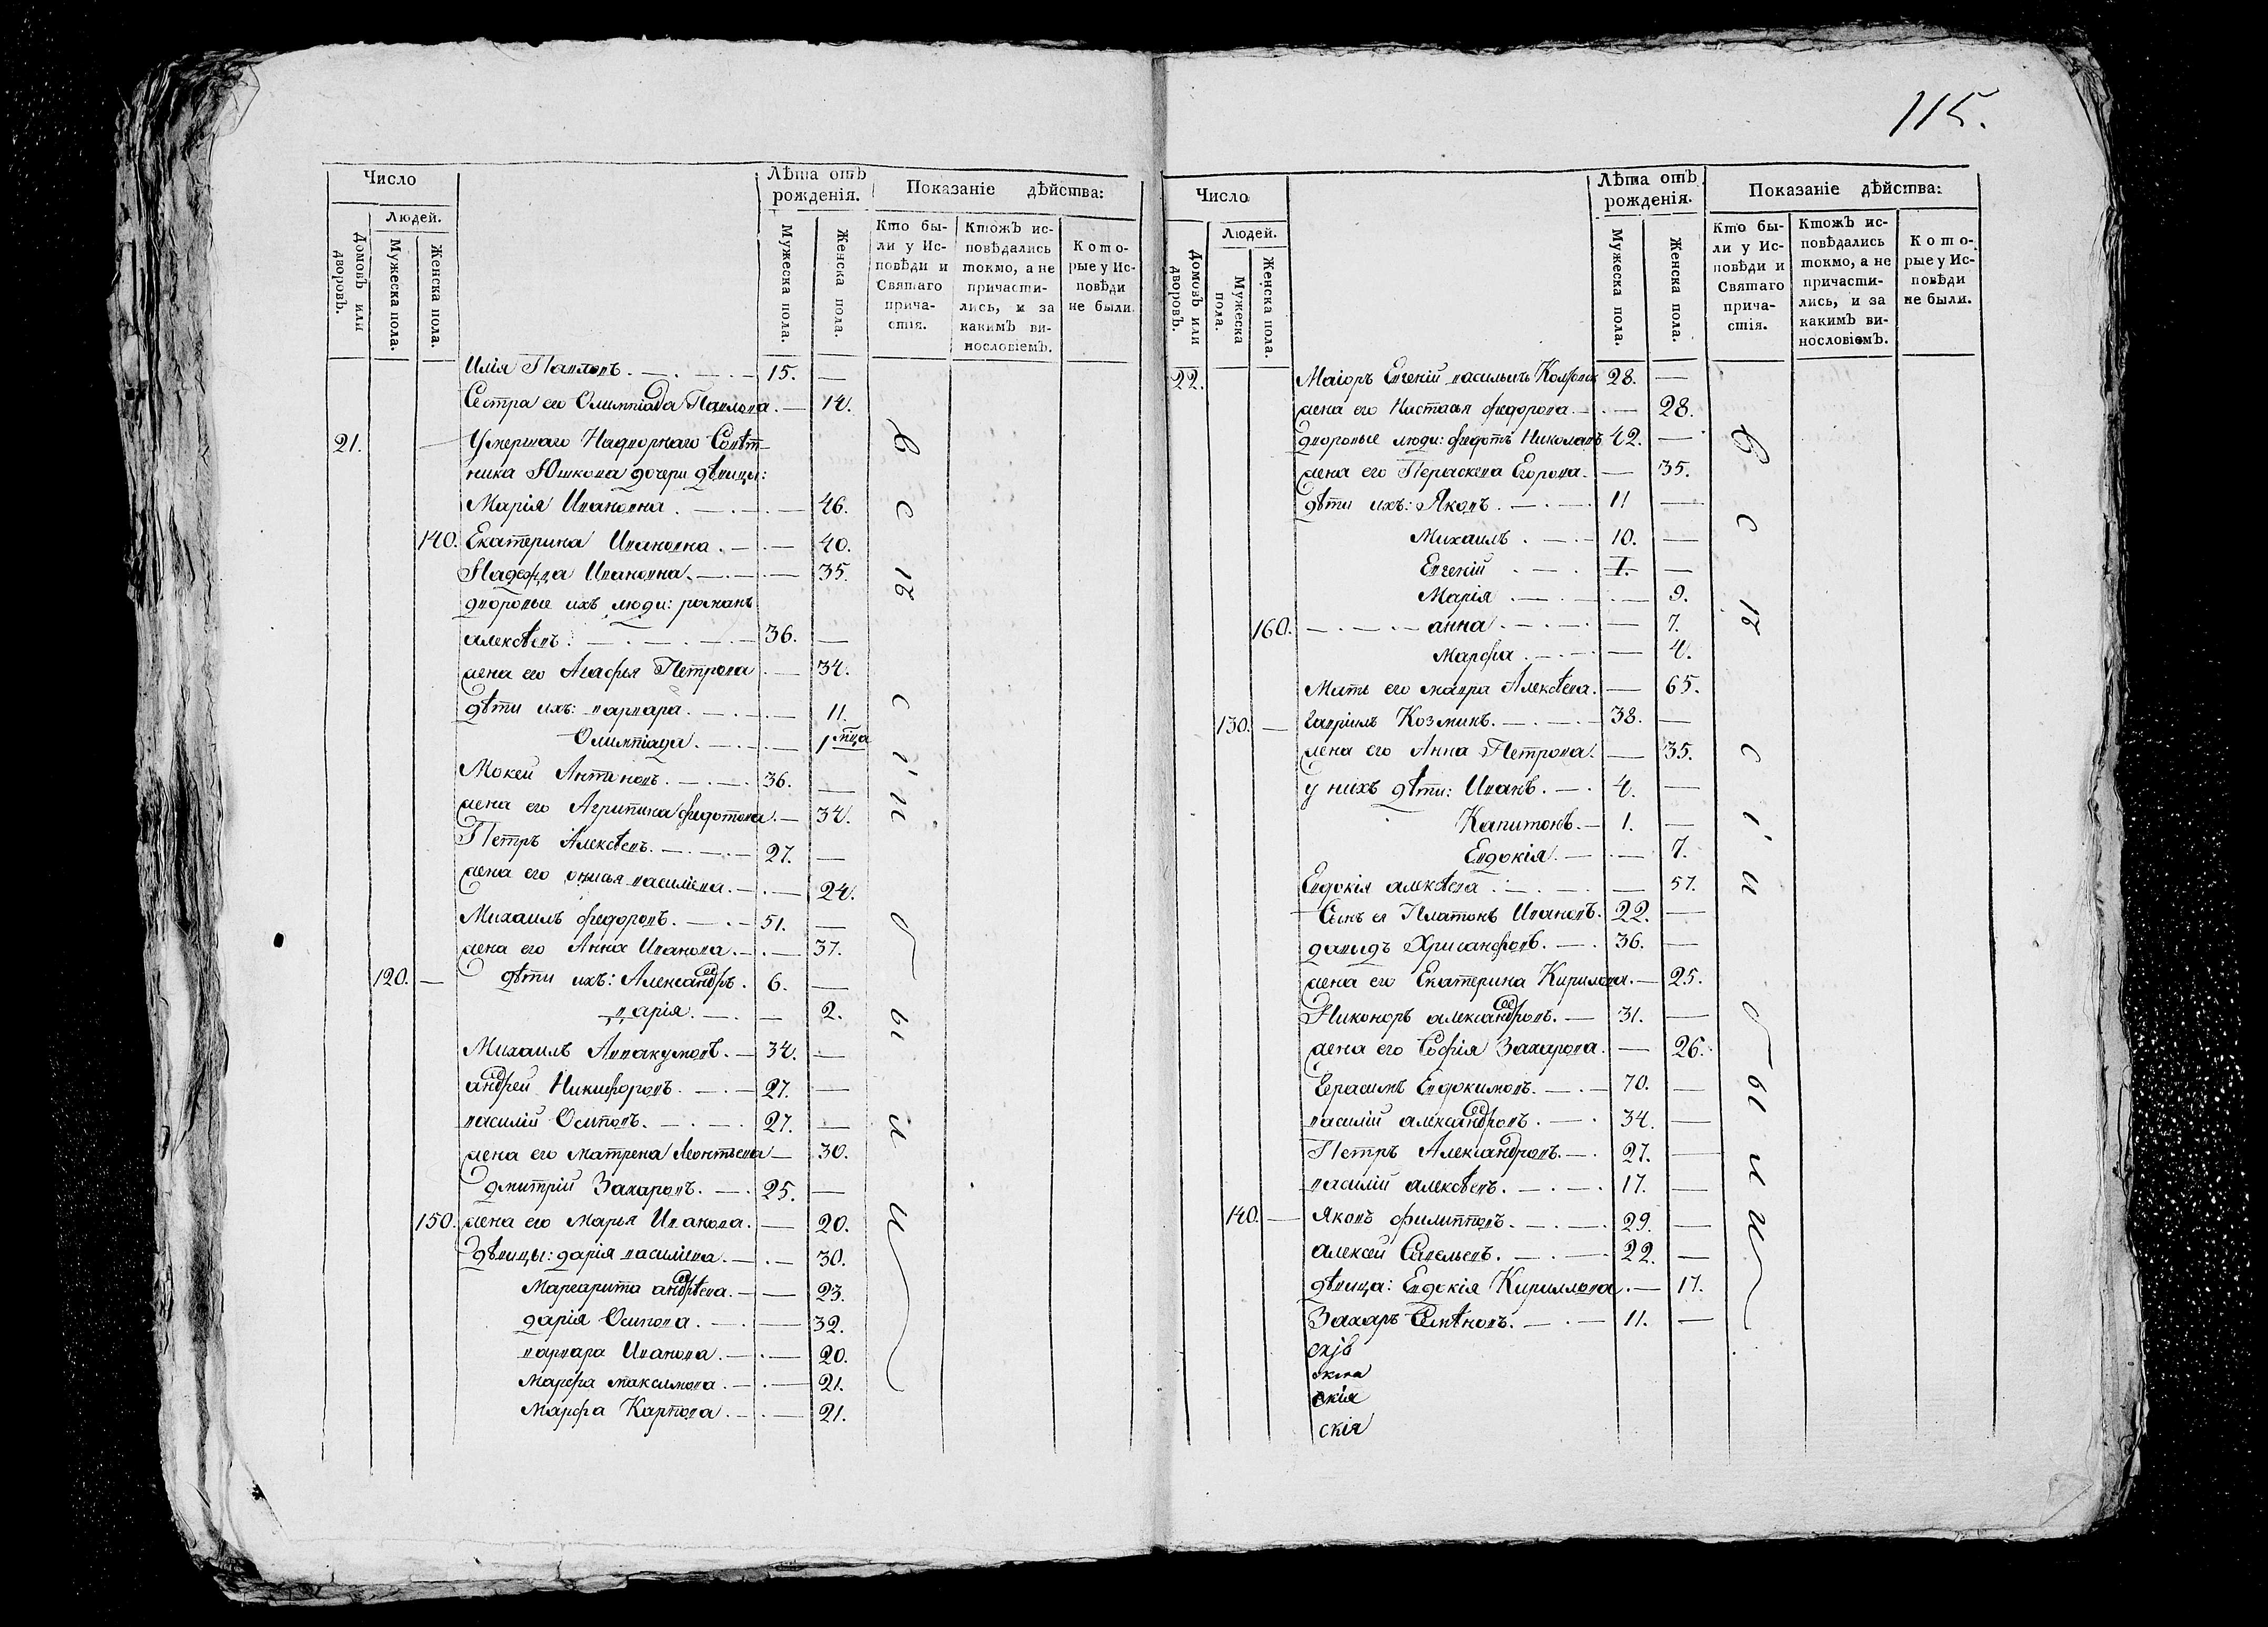 115.
Число
Людей.
Домовъ или дворовъ.
Мужеска пола.
Женска пола.
Лѣта отъ рожденія.
Мужеска пола.
Женска пола.
Показаніе дѣйства:
Кто бы-
ли у Ис-
повѣди и
Святаго
прича-
стія.
Ктожъ ис-
повѣдались
токмо, а не
причасти-
лись, и за
какимъ ви-
нословіемъ.
Кото-
рые у Ис-
повѣди
не были.
Илія Павловъ 15. —
Сестра его Олимпіада Павлова — 14.
21. Умершаго Надворнаго Совѣт-
ника Юшкова дочери дѣвицы:
Марія Ивановна — 46.
140. Екатерина Ивановна — 40.
Надежда Ивановна — 35.
дворовые ихъ люди: романъ
алексѣевъ 36. —
жена его Агафья Петрова — 34.
дѣти ихъ: варвара — 11.
Олимпіада — 1 мца
Мокей Антоновъ 36. —
жена его Агрипина федотова — 34.
Петръ Алексѣевъ 27. —
жена его василіева — 24.
Михаилъ федоровъ 51. —
жена его Анна Иванова — 37.
120. — дѣти ихъ: Александръ 6. —
дарія — 2.
Михаилъ Аввакумовъ 34. —
андрей Никифоровъ 27. —
василій Осиповъ 27. —
жена его матрена Леонтьева — 30.
дмитрій Захаровъ 25. —
150. жена его Марья Иванова — 20.
дѣвицы: дарія василіева — 30.
Маргарита андрѣева — 23.
дарія Осипова — 32.
варвара Иванова — 20.
Марфа максимова — 21.
Марфа Карпова — 21.
всѣ были
Число
Людей.
Домовъ или дворовъ.
Мужеска пола.
Женска пола.
Лѣта отъ рожденія.
Мужеска пола.
Женска пола.
Показаніе дѣйства:
Кто бы-
ли у Ис-
повѣди и
Святаго
прича-
стія.
Ктожъ ис-
повѣдались
токмо, а не
причасти-
лись, и за
какимъ ви-
нословіемъ.
Кото-
рые у Ис-
повѣди
не были.
22. Маіоръ Евгеній васильичь 28. —
жена его Настасья федорова — 28.
дворовые люди: федотъ Николаевъ 42. —
жена его Параскева Егорова — 35.
дѣти ихъ: Яковъ 11 —
Михаилъ 10. —
Евгеній 1. —
Марія — 9.
160. анна — 7.
Марфа — 4.
Мать его мавра Алексѣева — 65.
130. — Гавріилъ Козминъ 38. —
жена его Анна Петрова — 35.
у нихъ дѣти: Иванъ 4. —
Капитонъ 1. —
Евдокія — 7.
Евдокія алексѣева — 57.
Сынъ ея Платонъ Ивановъ 22. —
давидъ Хрисанфовъ 36. —
жена его Екатерина Кирилова — 25.
Никоноръ александровъ 31. —
жена его Софія Захарова — 26.
Герасимъ Евдокимовъ 70. —
василій александровъ 34. —
Петръ Александровъ 27. —
василій алексѣевъ 17. —
140. — Яковъ филипповъ 29. —
алексѣй Савельевъ 22. —
дѣвица: Евдокія Кириллова — 17.
Захаръ Семѣновъ 11. —
скія
скія
всѣ были